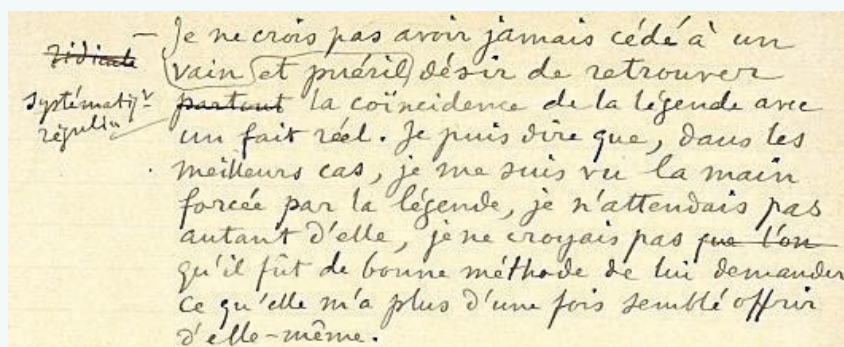 ridicule
systématiqt
régulièt
— Je ne crois pas avoir jamais cédé à un
vain et puéril désir de retrouver
partout la coïncidence de la légende avec
un fait réel. Je puis dire que, dans les
meilleurs cas, je me suis vu la main
forcée par la légende, je n'attendais pas
autant d'elle, je ne croyais pas que l'on
qu'il fût de bonne méthode de lui demander
ce qu'elle m'a plus d'une fois semblé offrir
d'elle-même.